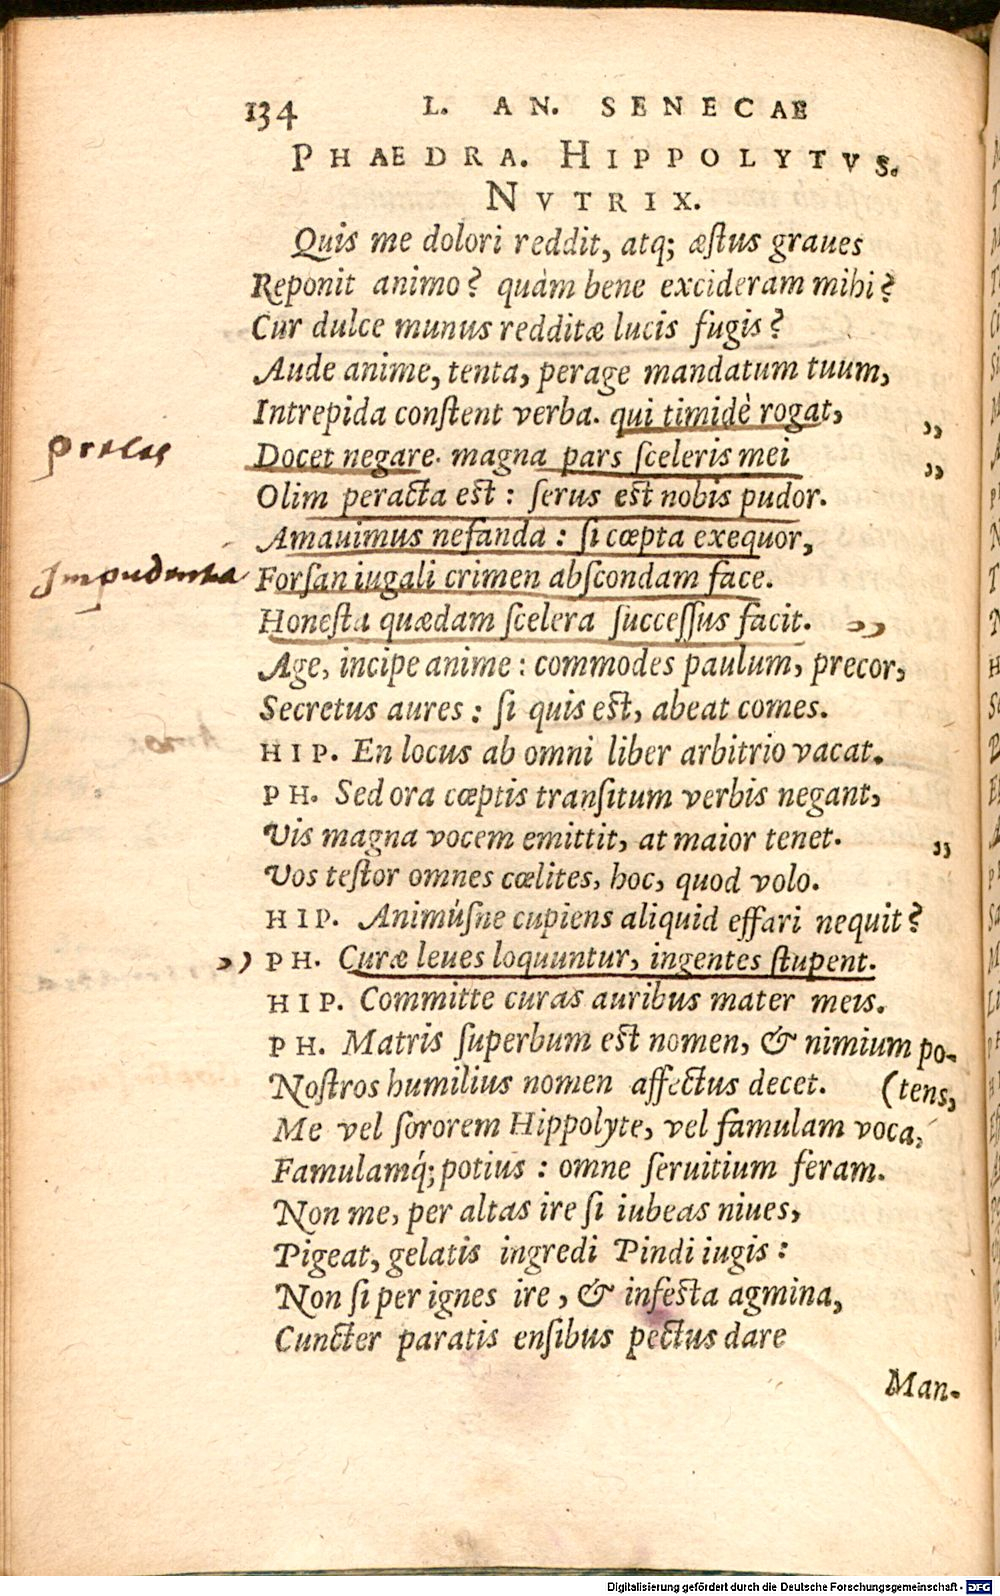 134 L. AN. SENECAE
PHAEDRA. HIPPOLYTVS.
NVTRIX.
Quis me dolori reddit, atq; æſtus graues
Reponit animo? quàm bene excideram mihi?
Cur dulce munus redditæ lucis fugis?
Aude anime, tenta, perage mandatum tuum,
Intrepida conſtent verba. qui timidè rogat, ,,
Docet negare. magna pars ſceleris mei ,,
Olim peracta eſt : ſerus eſt nobis pudor.
Amauimus nefanda : ſi cœpta exequor,
Impudentia Forſan iugali crimen abſcondam face.
Honeſta quædam ſcelera ſucceſſus facit. ,,
Age, incipe anime : commodes paulum, precor,
Secretus aures : ſi quis eſt, abeat comes.
HIP. En locus ab omni liber arbitrio vacat.
PH. Sed ora cœptis tranſitum verbis negant,
Vis magna vocem emittit, at maior tenet. ,,
Vos teſtor omnes cœlites, hoc, quod volo.
HIP. Animúſne cupiens aliquid effari nequit?
,, PH. Curæ leues loquuntur, ingentes ſtupent.
HIP. Committe curas auribus mater meis.
PH. Matris ſuperbum eſt nomen, & nimium po-
Noſtros humilius nomen affectus decet. (tens,
Me vel ſororem Hippolyte, vel famulam voca,
Famulamq́; potius : omne ſeruitium feram.
Non me, per altas ire ſi iubeas niues,
Pigeat, gelatis ingredi Pindi iugis :
Non ſi per ignes ire, & infeſta agmina,
Cuncter paratis enſibus pectus dare
Man-
Digitalisierung gefördert durch die Deutsche Forschungsgemeinschaft - DFG